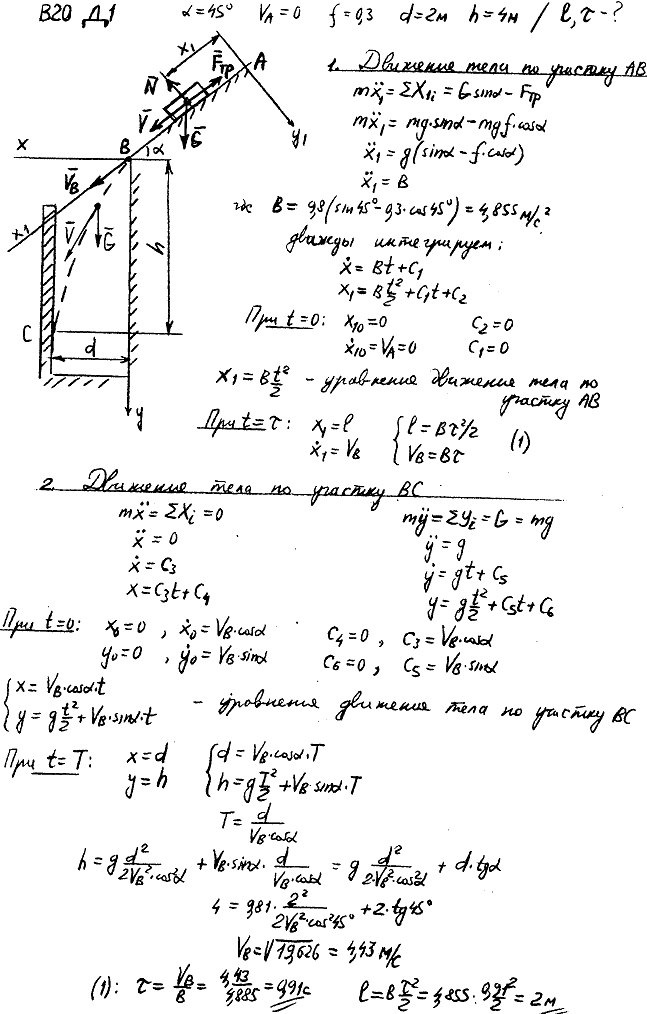 B20 Д.1 α=45° V_A=0 f=0,3 d=2м h=4м / l, τ-?
x₁ A
N̄ F̄тр
V̄ Ḡ y₁
x B α
V̄_B
x₁ V̄ Ḡ h
C d
y
1. Движение тела по участку AB
mẍ₁ = ΣX₁ᵢ = G sinα - Fтр
mẍ₁ = mg·sinα - mgf·cosα
ẍ₁ = g(sinα - f·cosα)
ẍ₁ = B
где B = 9,8(sin45° - 0,3·cos45°) = 4,855 м/с²
дважды интегрируем:
ẋ = Bt + C₁
x₁ = B t²/2 + C₁t + C₂
При t=0: x₁₀=0 C₂=0
ẋ₁₀=V_A=0 C₁=0
x₁ = B t²/2 - уравнение движение тела по
участку AB
При t=τ: x₁=l { l=Bτ²/2
ẋ₁=V_B { V_B=Bτ (1)
2. Движение тела по участку BC
mẍ = ΣXᵢ = 0 mÿ = ΣYᵢ = G = mg
ẍ = 0 ÿ = g
ẋ = C₃ ẏ = gt + C₅
x = C₃t + C₄ y = g t²/2 + C₅t + C₆
При t=0: x₀=0 , ẋ₀=V_B·cosα C₄=0 , C₃=V_B·cosα
y₀=0 , ẏ₀=V_B·sinα C₆=0 , C₅=V_B·sinα
{ x = V_B·cosα·t
{ y = g t²/2 + V_B·sinα·t - уравнения движение тела по участку BC
При t=T: x=d { d = V_B·cosα·T
y=h { h = g T²/2 + V_B·sinα·T
T = d/(V_B·cosα)
h = g d²/(2V_B²·cos²α) + V_B·sinα· d/(V_B·cosα) = g d²/(2·V_B²·cos²α) + d·tgα
4 = 9,81· 2²/(2V_B²·cos²45°) + 2·tg45°
V_B = √19,626 = 4,43 м/с
(1): τ = V_B/B = 4,43/4,885 = 0,91c l = B τ²/2 = 4,855· 0,91²/2 = 2м